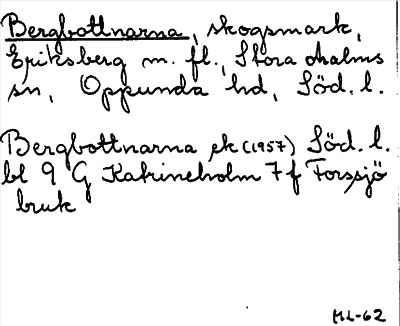 Bergbottnarna, skogsmark,
Eriksberg m. fl., Stora Malms
sn, Oppunda hd, Söd. l.
Bergbottnarna ek (1957) Söd. l.
bl 9 G Katrineholm 7 f Forssjö
bruk
ML-62